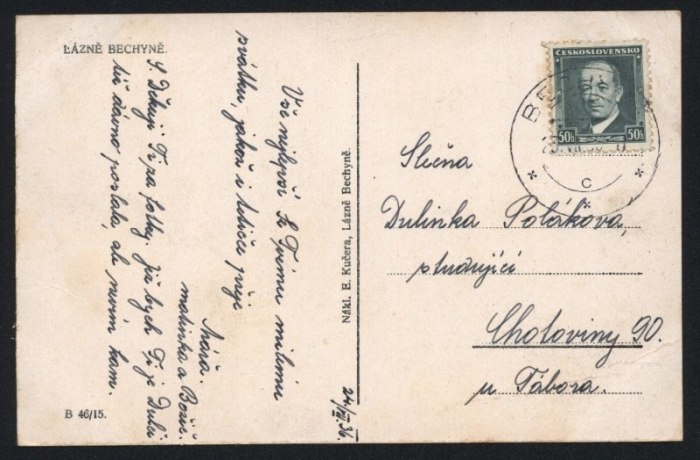 LÁZNĚ BECHYNĚ.
Vše nejlepší k Tvému milému
svátku, jakož i tetičce přeje
Máňa.
maminka a Bož
S. Děkuji Ti za fotky. Již bych Ti je Duli
tiž dávno poslala, ale nevím kam.
24/VII 36.
B 46/15.
Nákl. E. Kučera, Lázně Bechyně.
ČESKOSLOVENSKO
50h 50h
BE
C
Slečna
Dulinka Poláková,
studující
Chotoviny 90.
u Tábora.